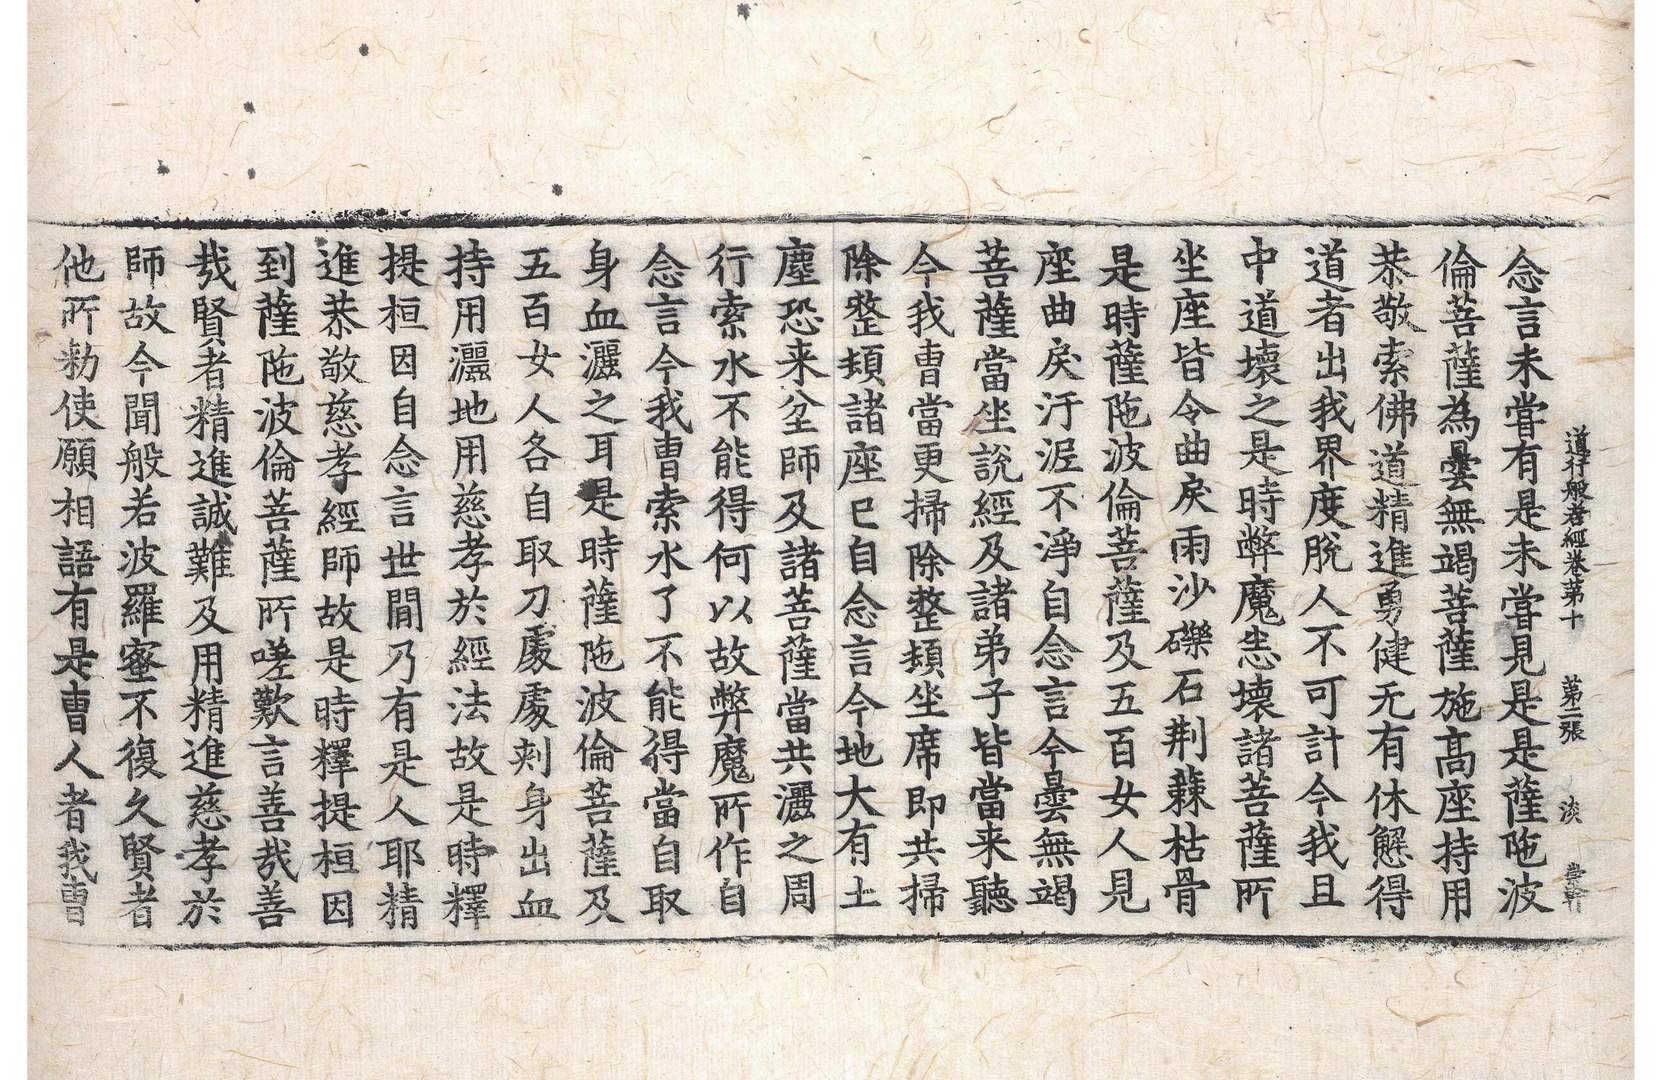 道行般若經卷第十　第二張　淡
念言未甞有是未甞見是是薩陁波
倫菩薩為曇無竭菩薩施髙座持用
恭敬索佛道精進勇健无有休懈得
道者出我界度脫人不可計今我且
中道壞之是時弊魔悉壞諸菩薩所
坐座皆令曲戾雨沙礫石荆蕀枯骨
是時薩陁波倫菩薩及五百女人見
座曲戾汙泥不淨自念言今曇無竭
菩薩當坐說經及諸弟子皆當来聽
今我曺當更掃除整頓坐席即共掃
除整頓諸座已自念言今地大有土
塵恐来坌師及諸菩薩當共灑之周
行索水不能得何以故弊魔所作自
念言今我曺索水了不能得當自取
身血灑之耳是時薩陁波倫菩薩及
五百女人各自取刀處處刾身出血
持用灑地用慈孝於經法故是時釋
提桓因自念言世閒乃有是人耶精
進恭敬慈孝經師故是時釋提桓因
到薩陁波倫菩薩所嗟歎言善哉善
哉賢者精進誠難及用精進慈孝於
師故今聞般若波羅蜜不復久賢者
他所勑使願相語有是曺人者我曺